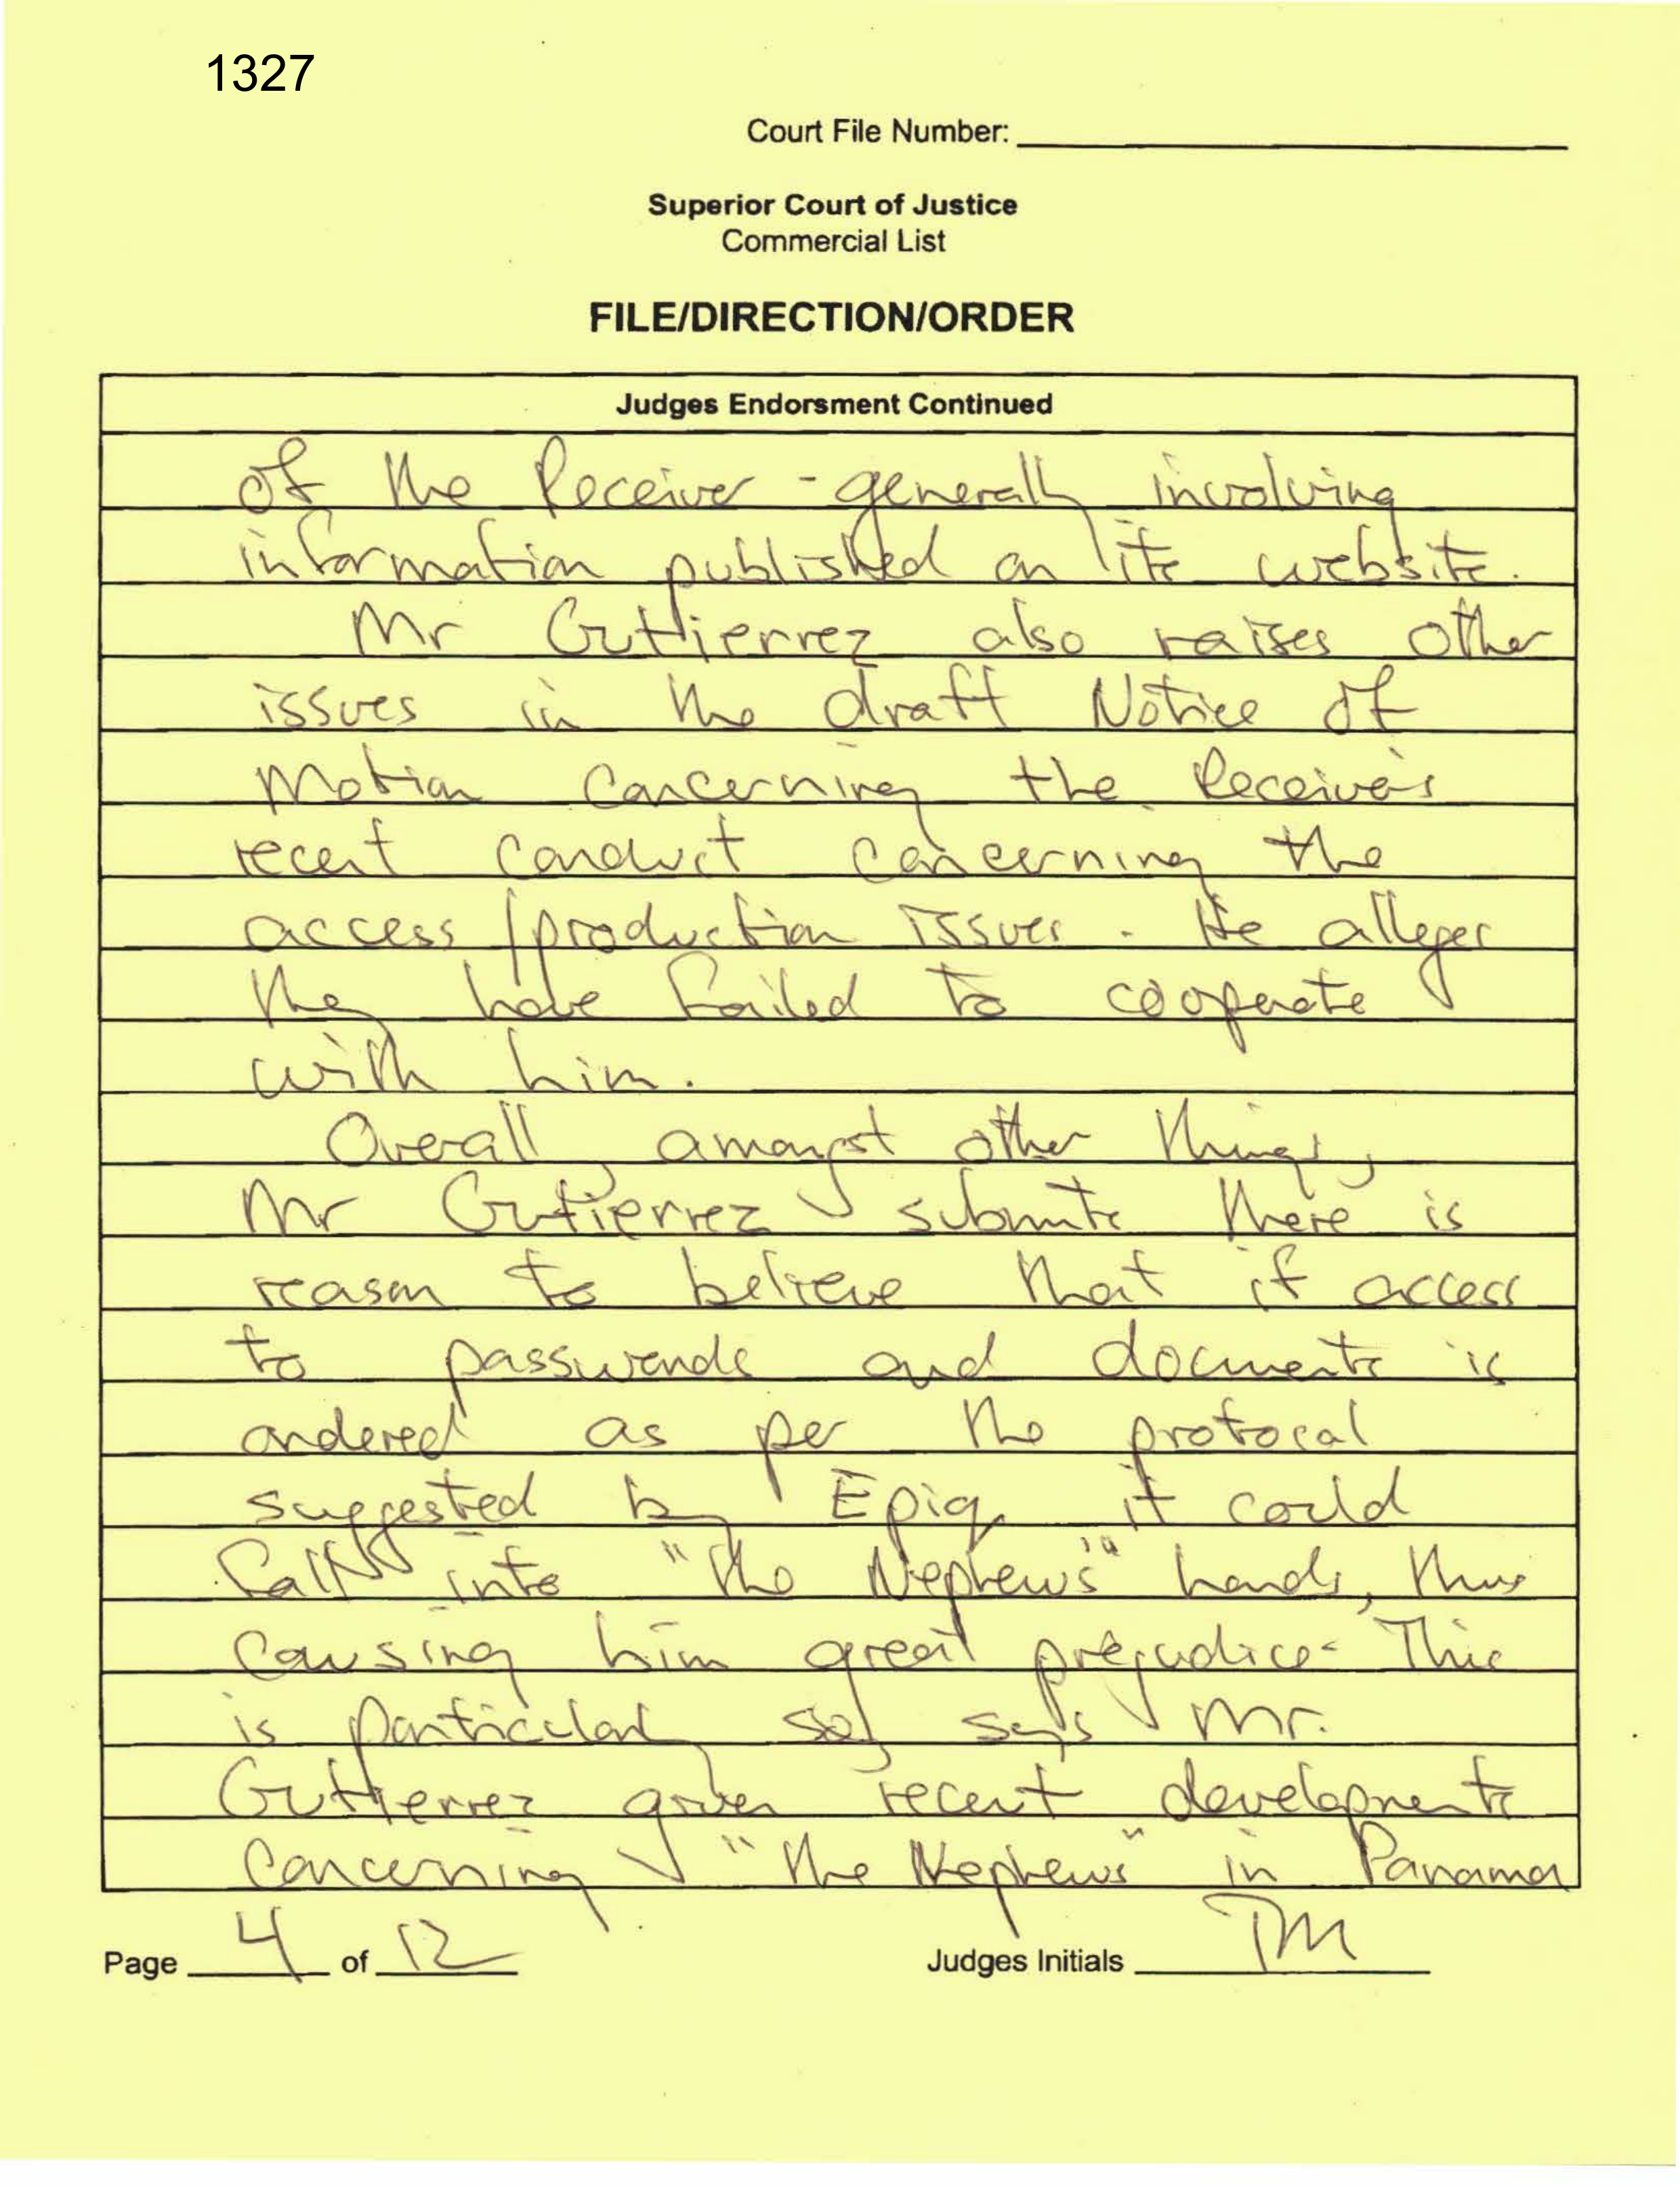 1327
Court File Number:
Superior Court of Justice
Commercial List
FILE/DIRECTION/ORDER
Judges Endorsment Continued
of the Receiver - generally involving
information published on its website.
Mr Guttierrez also raises other
issues in the draft Notice of
Motion concerning the Receiver's
recent conduct concerning the
access/production issues. He alleges
they have failed to cooperate
with him.
Overall, amongst other things,
Mr Gutierrez submits there is
reason to believe that if access
to passwords and documents is
ordered as per the protocol
suggested by Epiq, it could
fall into "the Nephews'" hands, thus
causing him great prejudice. This
is particularly so, says Mr.
Gutierrez given recent developments
concerning "the Nephews" in Panama
Page 4 of 12 Judges Initials TM